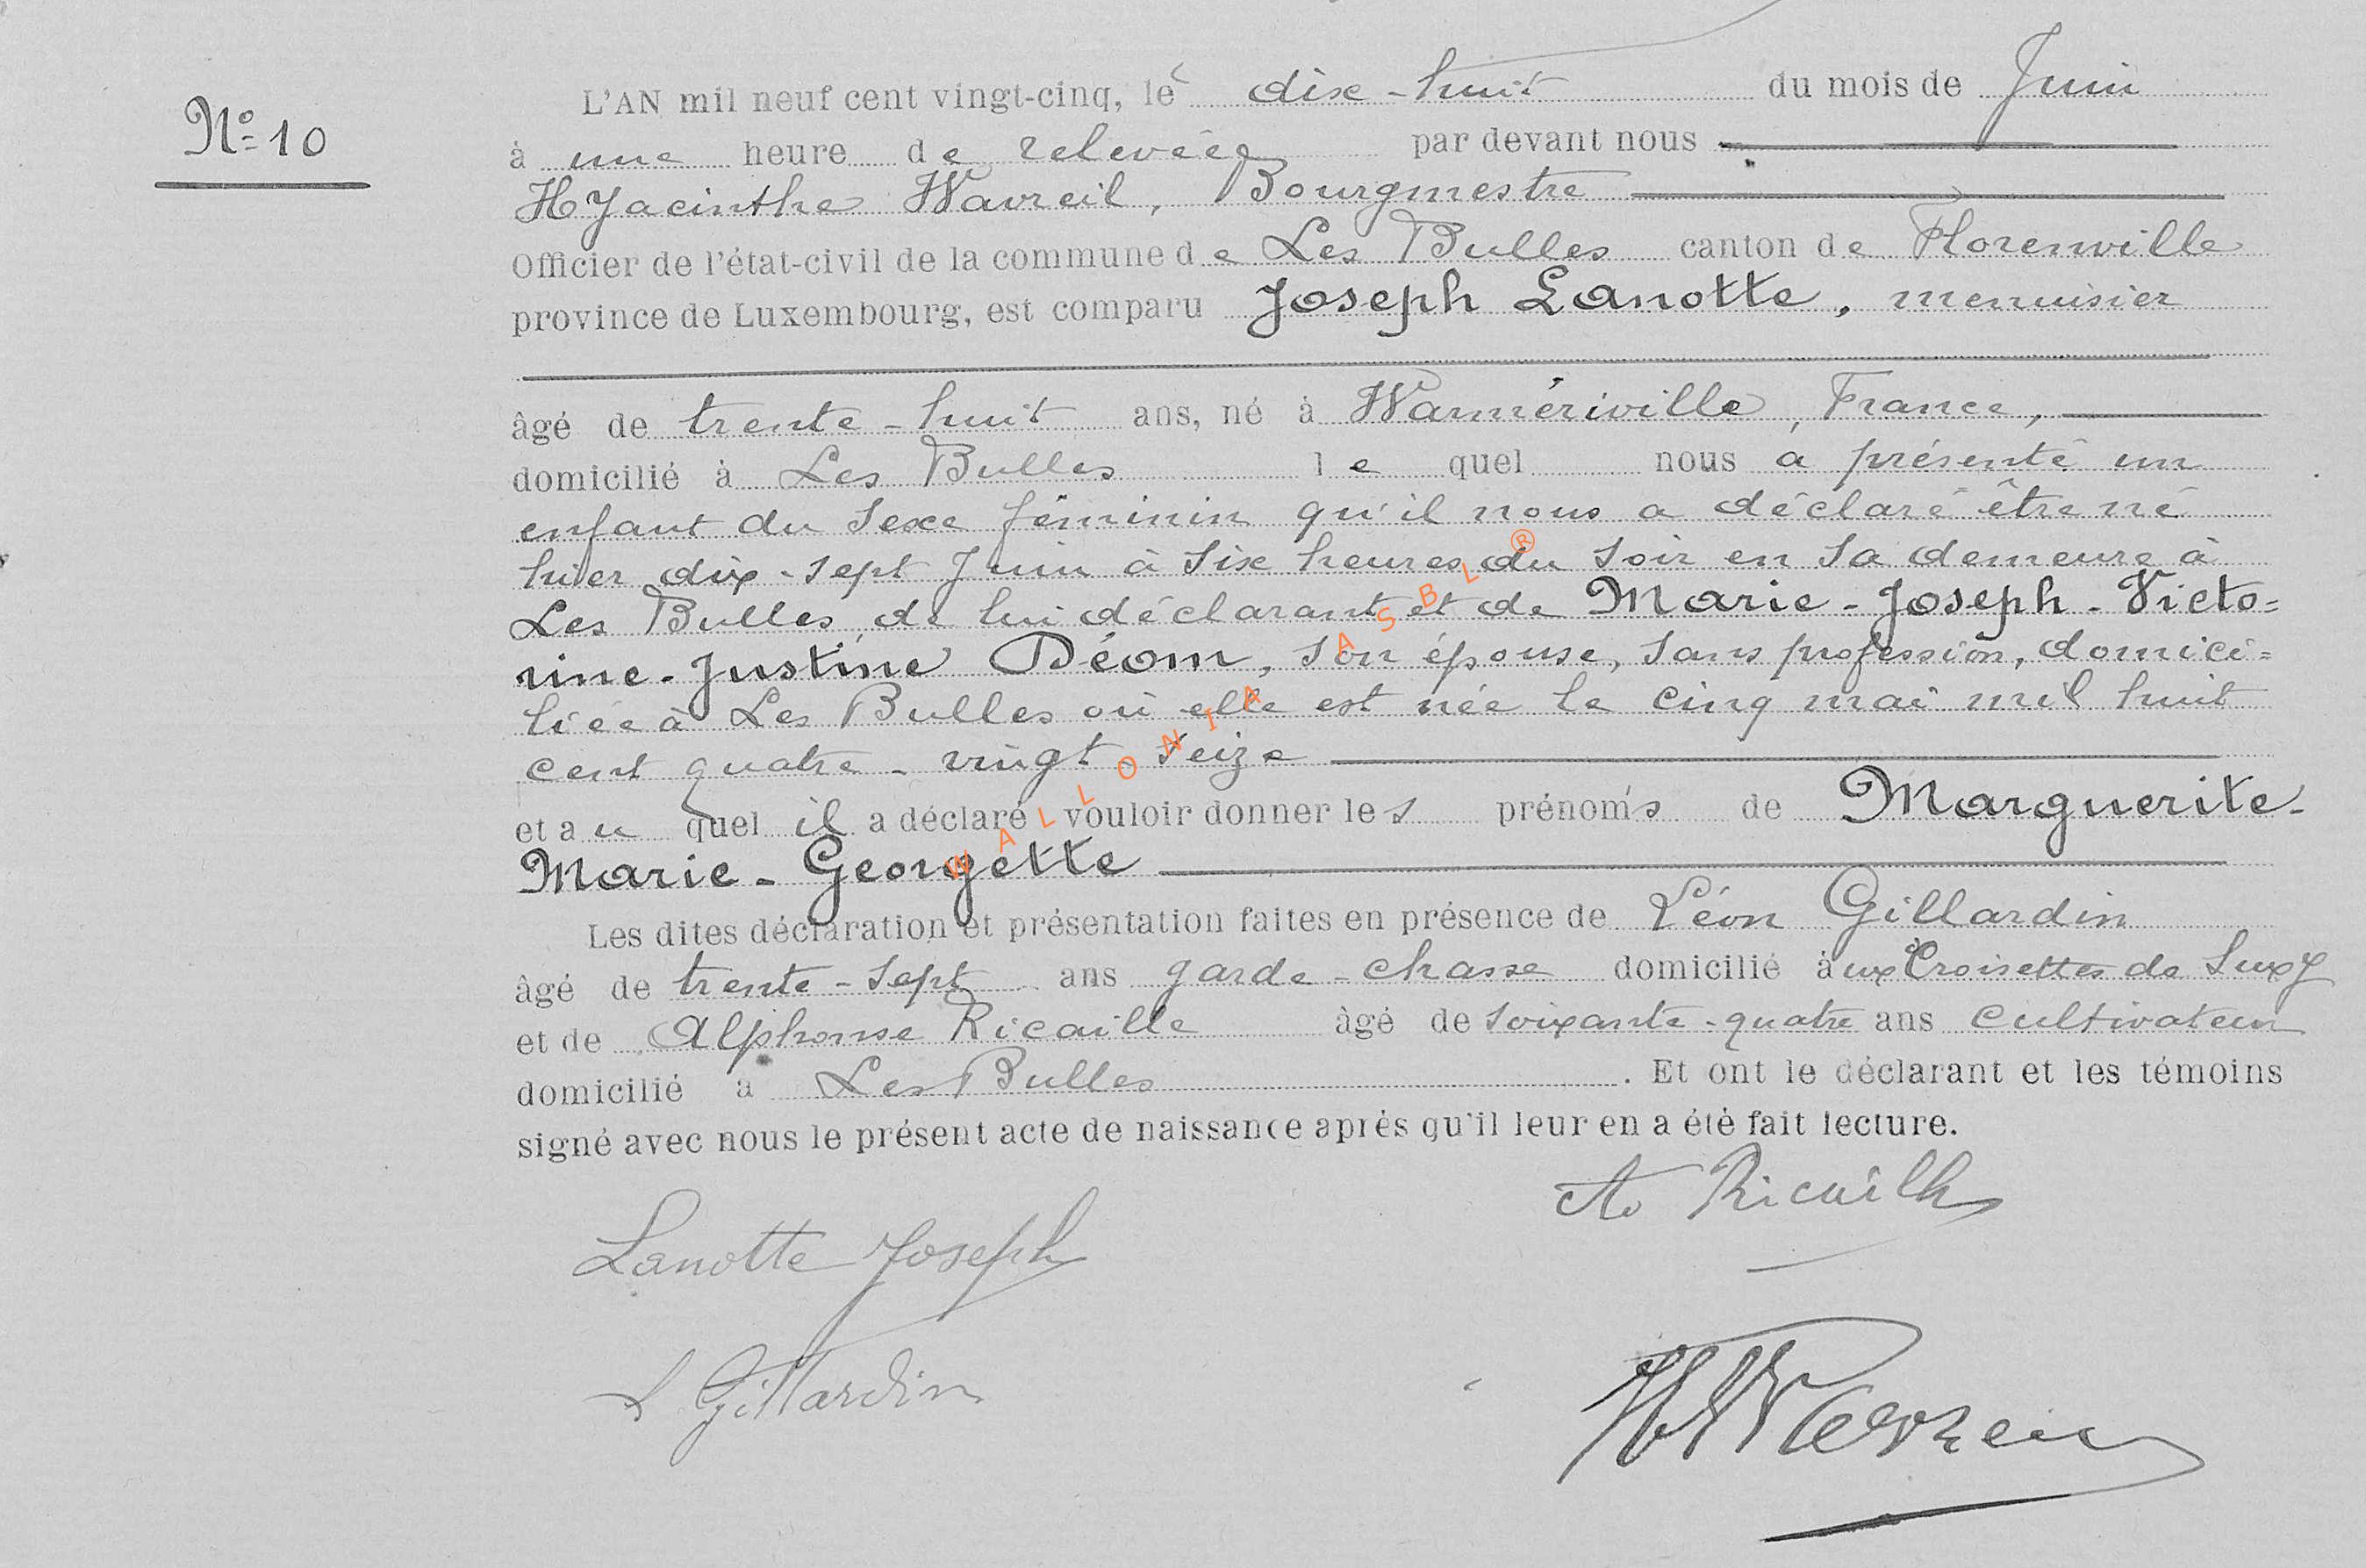 N° 10
L'AN mil neuf cent vingt-cinq, le dix-huit du mois de Juin
à une heure de relevée par devant nous
Hyacinthe Wavreil, Bourgmestre
Officier de l'état-civil de la commune de Les Bulles canton de Florenville
province de Luxembourg, est comparu Joseph Lanotte, menuisier
âgé de trente-huit ans, né à Warmériville, France,
domicilié à Les Bulles lequel nous a présenté un
enfant du sexe féminin qu'il nous a déclaré être né
hier dix-sept Juin à six heures du soir en sa demeure à
Les Bulles, de lui déclarant et de Marie-Joseph-Victo=
rine-Justine Déom, son épouse, sans profession, domici=
liée à Les Bulles où elle est née le cinq mai mil huit
cent quatre-vingt-seize
et au quel il a déclaré vouloir donner les prénoms de Marguerite-
Marie-Georgette
Les dites déclaration et présentation faites en présence de Léon Gillardin
âgé de trente-sept ans garde-chasse domicilié aux Croisettes de Suxy
et de Alphonse Ricaille âgé de soixante-quatre ans cultivateur
domicilié à Les Bulles. Et ont le déclarant et les témoins
signé avec nous le présent acte de naissance après qu'il leur en a été fait lecture.
Ricaille
Lanotte Joseph
L Gillardin
WALLONIA ASBL ®